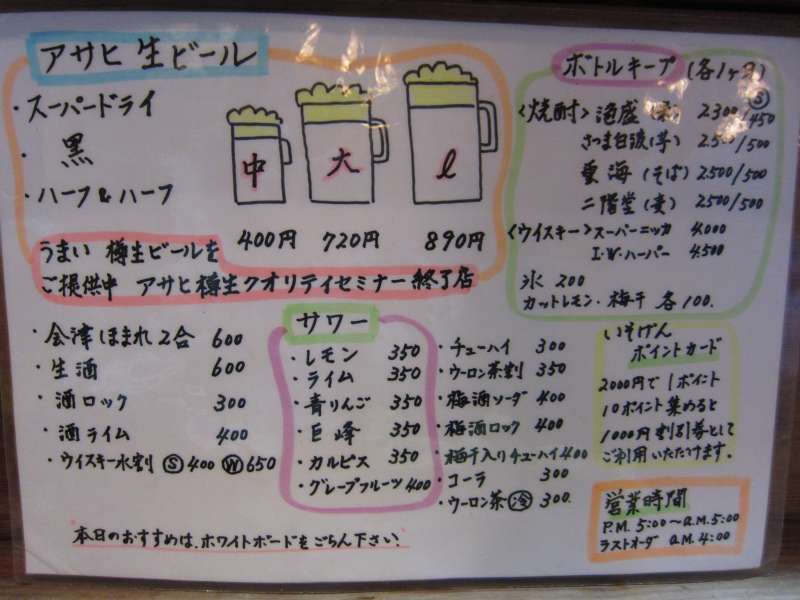 アサヒ 生ビール
・スーパードライ
・黒
・ハーフ&ハーフ
中 大 l
400円 720円 890円
うまい 樽生ビールを
ご提供中 アサヒ樽生クオリティセミナー終了店
ボトルキープ (各1ヶ月)
Ⓢ
<焼酎> 海盛(麦) 2300/450
さつま白波(芋) 2500/500
雲海(そば) 2500/500
二階堂(麦) 2500/500
<ウイスキー> スーパーニッカ 4.000
I.W.ハーパー 4.500
氷 200
カットレモン・梅干 各100.
・会津ほまれ2合 600
・生酒 600
・酒ロック 300
・酒ライム 400
・ウイスキー水割 Ⓢ400 Ⓦ650
サワー
・レモン 350
・ライム 350
・青りんご 350
・巨峰 350
・カルピス 350
・グレープフルーツ 400
・チューハイ 300
・ウーロン茶割 350
・梅酒ソーダ 400
・梅酒ロック 400
・梅干入りチューハイ 400
・コーラ 300
・ウーロン茶(冷) 300.
いそげん
ポイントカード
2000円で1ポイント
10ポイント集めると
1000円割引券として
ご利用いただけます。
営業時間
P.M. 5:00〜a.m.5:00
ラストオーダ a.M.4:00
本日のおすすめは、ホワイトボードをごらん下さい。